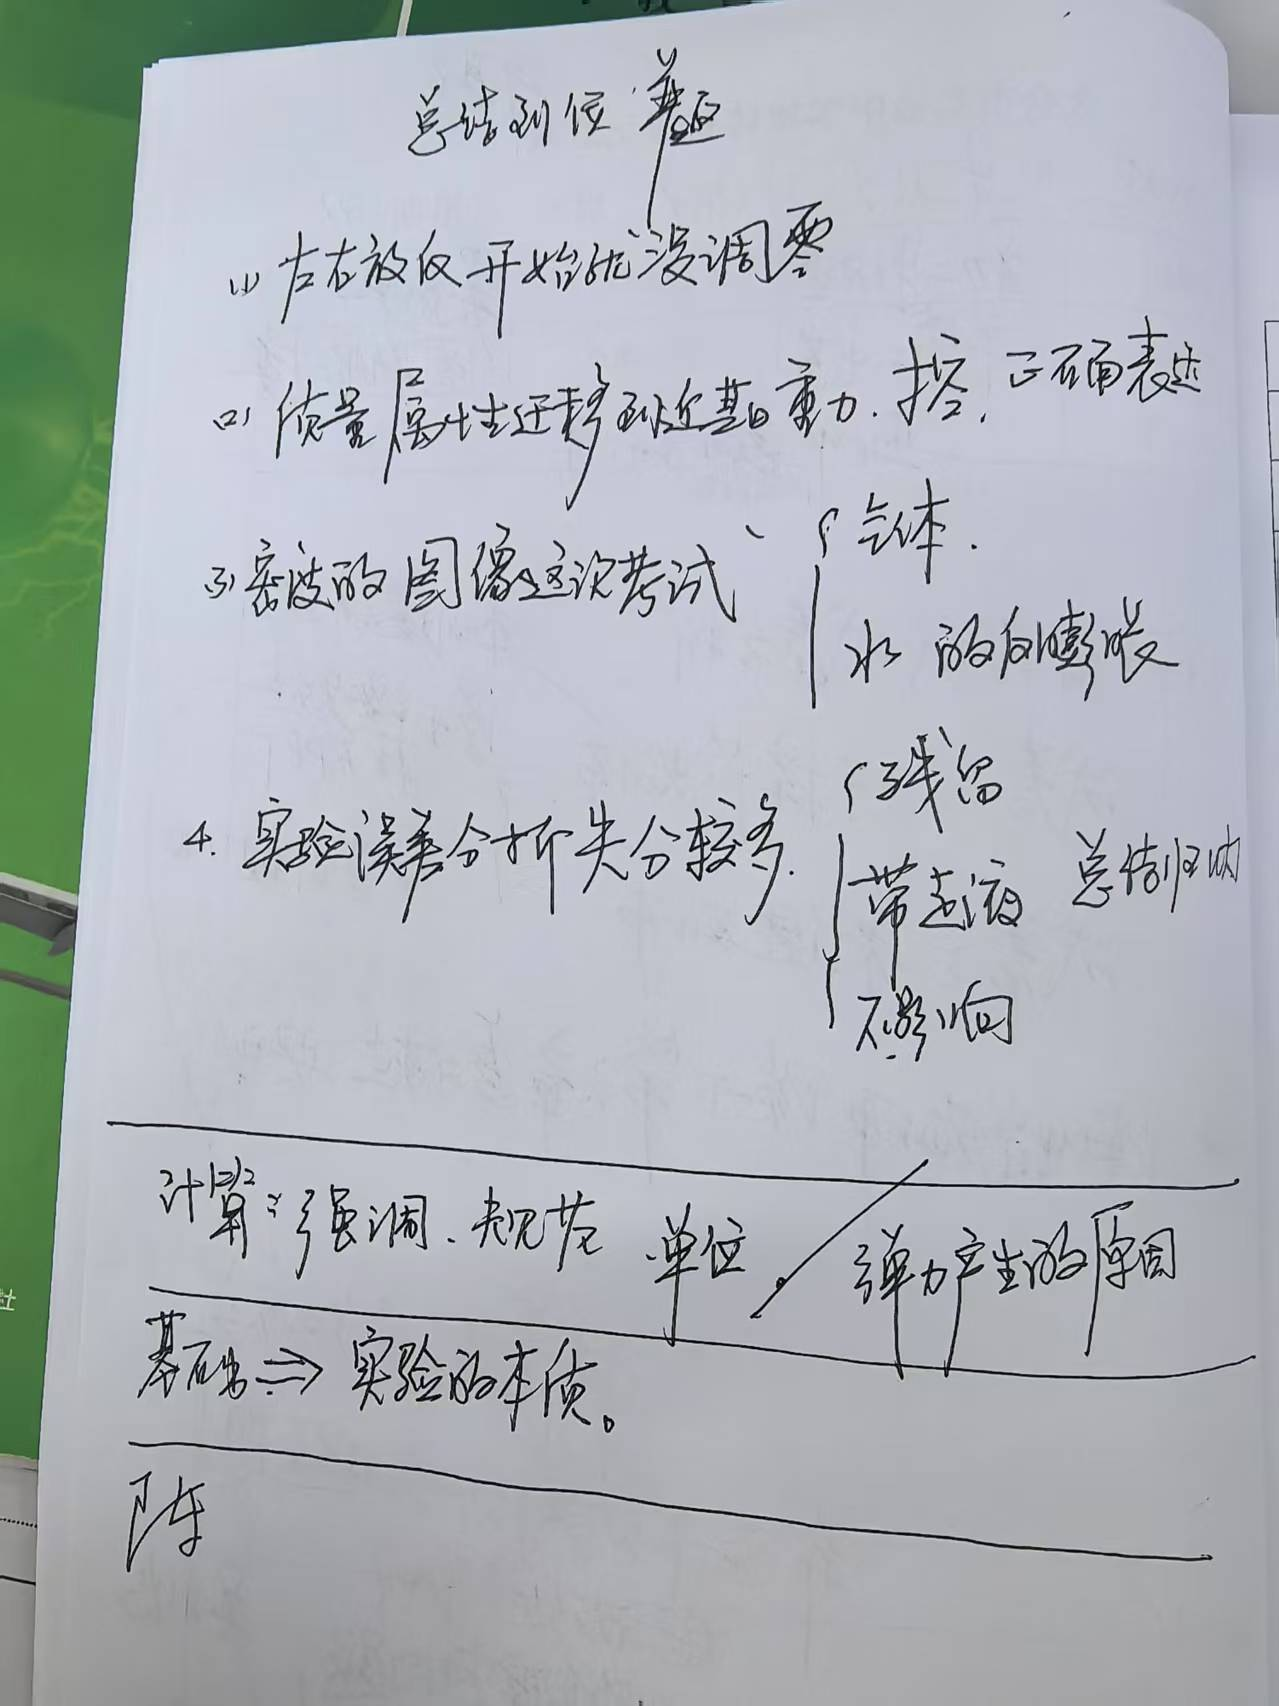 总结到位
(1) 左右放反 开始就没调零
(2) 质量属性迁移到 重力. 控. 正确表述
(3) 密度的图像这次考试 { 气体.
水 的反膨胀
4. 实验误差分析失分较多. { 残留
带走液 总结归纳
不影响
计算: 强调、规范 单位 / 弹力产生的原因
基础 => 实验的本质。
陈
社